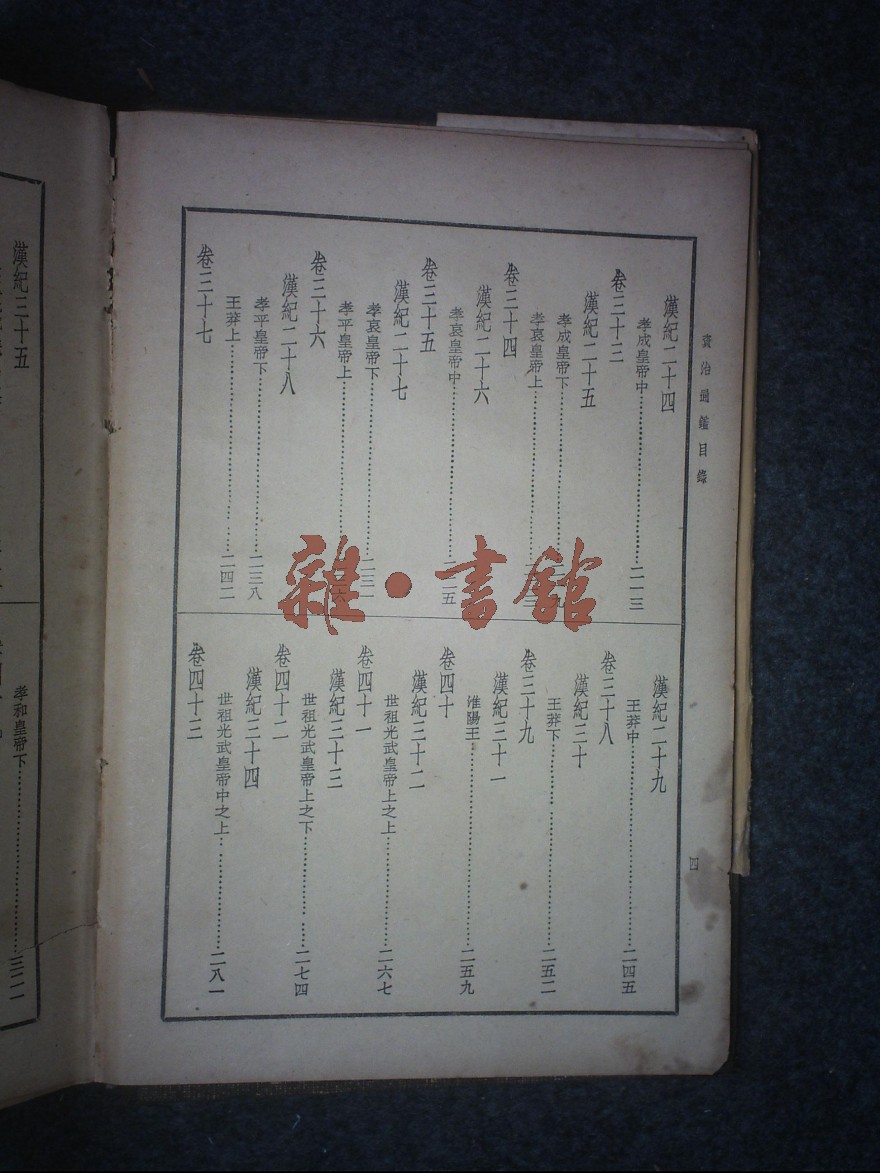 資治通鑑目錄
漢紀二十四
孝成皇帝中……二一三
卷三十三
漢紀二十五
孝成皇帝下……
孝哀皇帝上……
卷三十四
漢紀二十六
孝哀皇帝中……
卷三十五
漢紀二十七
孝哀皇帝下……二三一
孝平皇帝上……
卷三十六
漢紀二十八
孝平皇帝下……二三八
王莽上……二四二
卷三十七
漢紀二十九
王莽中……二四五
卷三十八
漢紀三十
王莽下……二五二
卷三十九
漢紀三十一
淮陽王……二五九
卷四十
漢紀三十二
世祖光武皇帝上之上……二六七
卷四十一
漢紀三十三
世祖光武皇帝上之下……二七四
卷四十二
漢紀三十四
世祖光武皇帝中之上……二八一
卷四十三
四
漢紀三十五
孝和皇帝下……
雜·書館